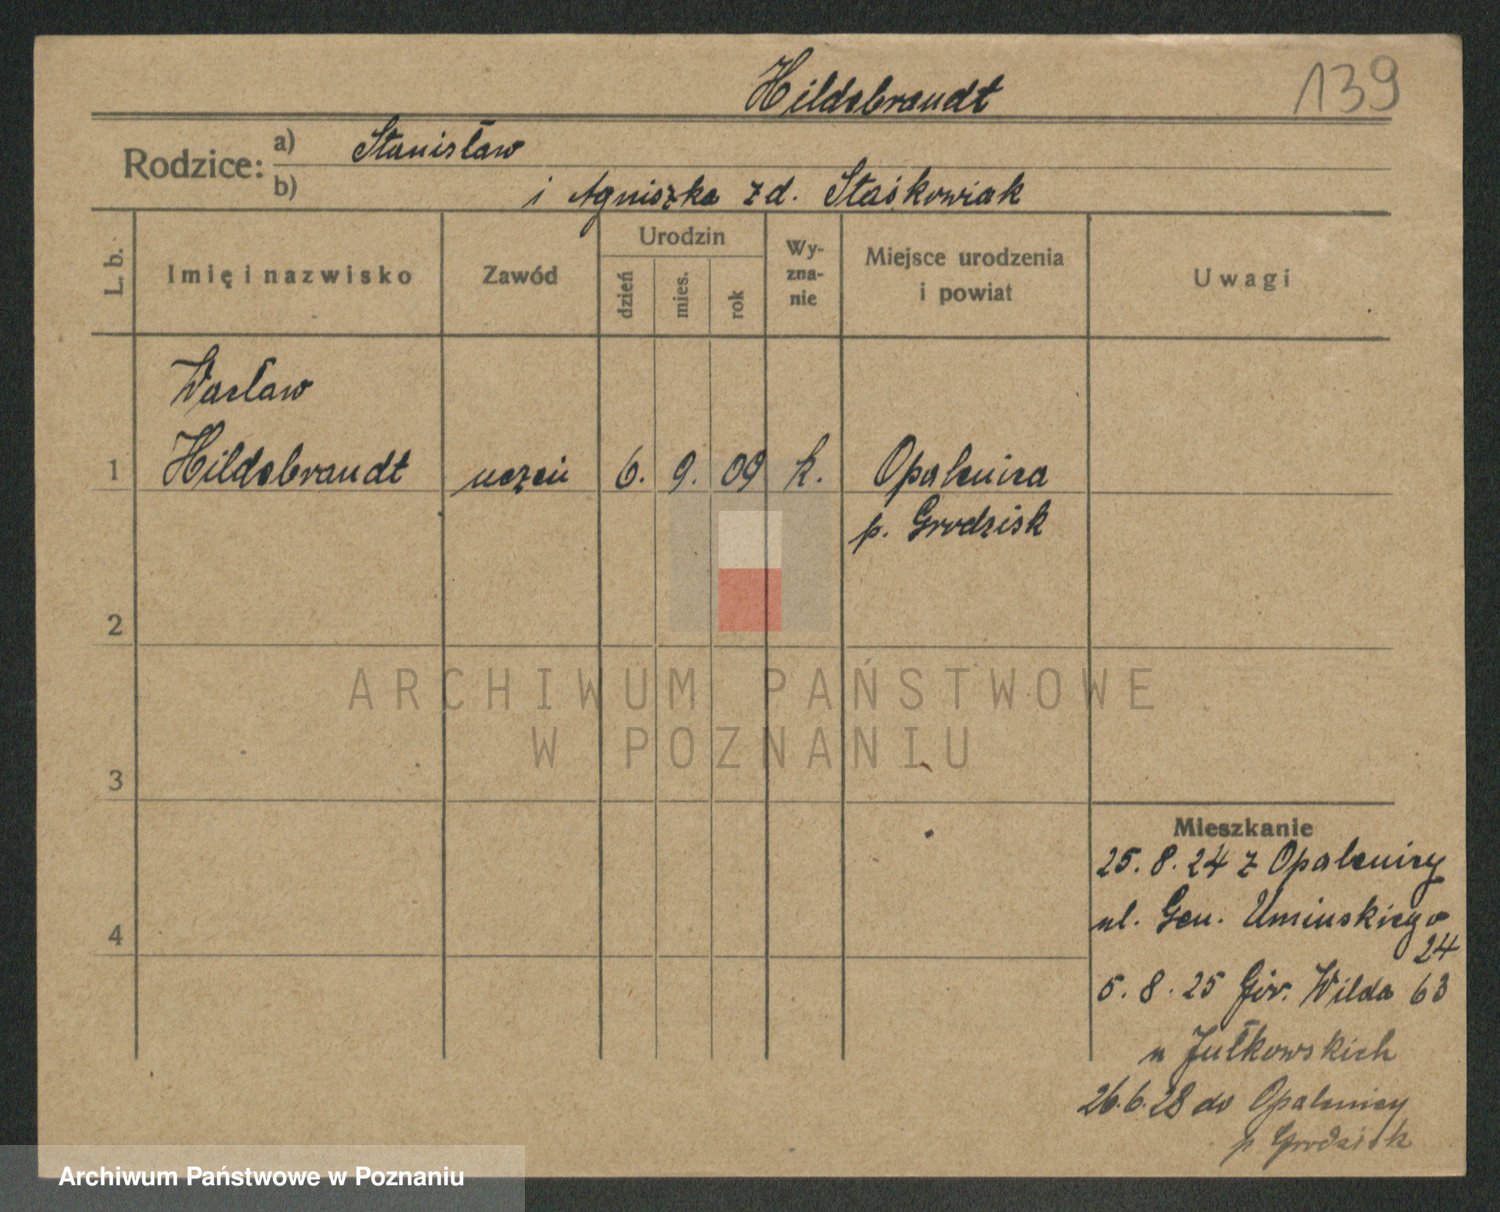 Hildebrandt
139
Rodzice: a) Stanisław
b) i Agniszka zd. Staśkowiak
L. b.
Imię i nazwisko
Zawód
Urodzin
dzień
mies.
rok
Wy-
zna-
nie
Miejsce urodzenia
i powiat
Uwagi
Wacław
1 Hildebrandt uczeń 6. 9. 09 k. Opalenica
p. Grodzisk
2
3
4
Mieszkanie
25. 8. 24 z Opalenicy
ul. Gen. Umińskiego
24
5. 8. 25 Gór. Wilda 63
u Jułkowskich
26.6.28 do Opalenicy
p Grodzisk
ARCHIWUM PAŃSTWOWE
W POZNANIU
Archiwum Państwowe w Poznaniu